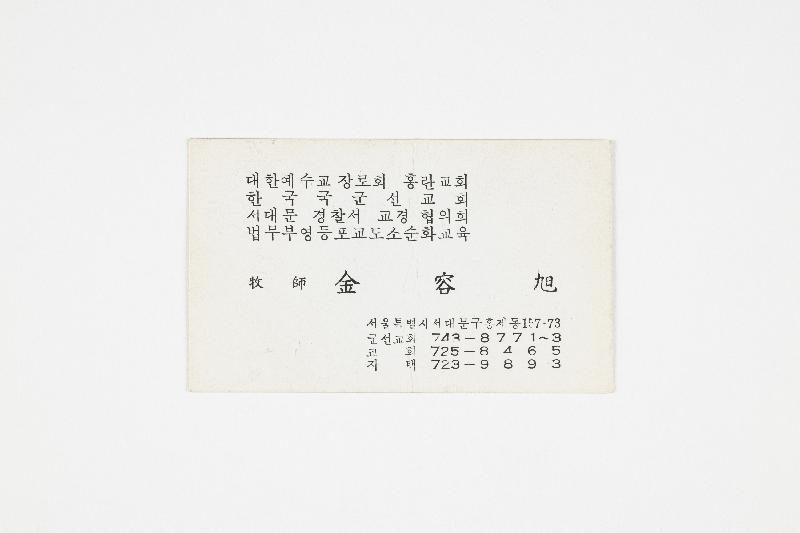 대한예수교 장로회 홍란교회
한국국군선교회
서대문 경찰서 교경 협의회
법무부영등포교도소순화교육
牧師 金容旭
서울특별시서대문구홍제동157-73
군선교회 743-8771~3
교회 725-8465
자택 723-9893